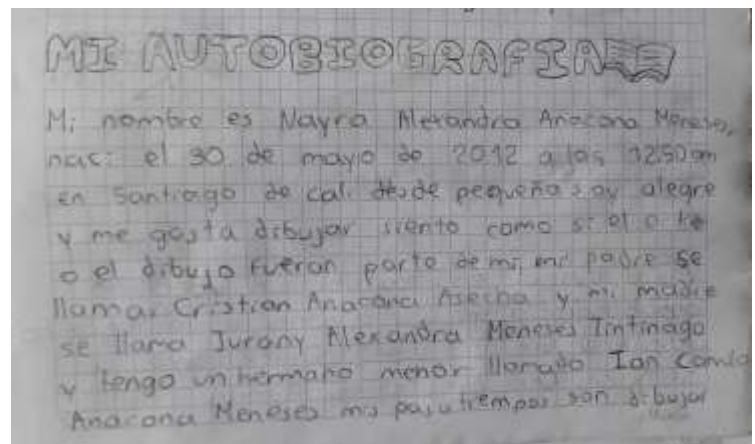 MI AUTOBIOGRAFIA
Mi nombre es Nayra Alexandra Anacona Meneses,
naci el 30 de mayo de 2012 a las 12:50am
en Santiago de cali desde pequeña soy alegre
y me gusta dibujar siento como si el a te
o el dibujo fueran parte de mi, mi padre se
llama. Cristian Anacona y mi madre
se llama Yurany Alexandra Meneses Tintinago
y tengo un hermano menor llamado Ian Camilo
Anacona Meneses mis pasatiempos son dibujar